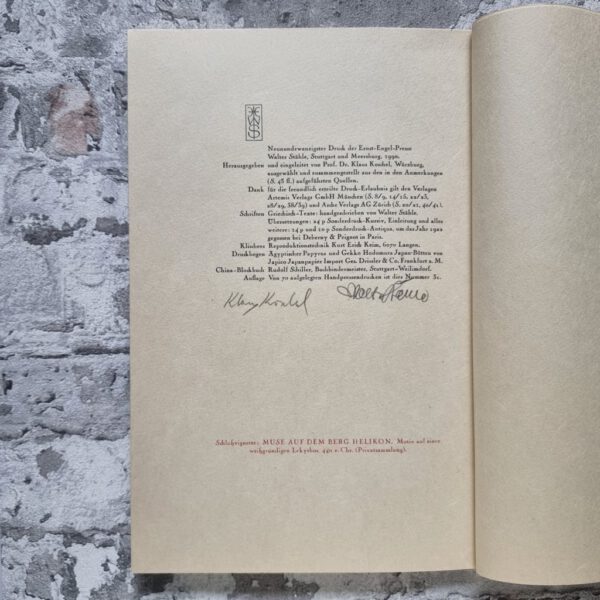 Neunundzwanzigster Druck der Ernst-Engel-Presse
Walter Stähle, Stuttgart und Meersburg, 1990.
Herausgegeben und eingeleitet von Prof. Dr. Klaus Konhel, Würzburg,
ausgewählt und zusammengestellt aus den in den Anmerkungen
(S. 45 ff.) aufgeführten Quellen.
Dank für die freundlich erteilte Druck-Erlaubnis gilt den Verlagen
Artemis Verlags GmbH München (S. 8/9, 14/15, 22/23,
28/29, 38/39) und Arche Verlags AG Zürich (S. 20/21, 40/41).
Schriften Griechisch-Texte: handgeschrieben von Walter Stähle.
Übersetzungen: 24 p Sonderdruck-Kursiv, Einleitung und alles
weitere: 14 p und 10 p Sonderdruck-Antiqua, um das Jahr 1912
gegossen bei Deberny & Peignot in Paris.
Klischees Reproduktionstechnik Kurt Erich Keim, 6070 Langen.
Druckbogen Ägyptischer Papyrus und Gekko Hodomura Japan-Bütten von
Japico Japanpapier Import Ges. Drissler & Co. Frankfurt a. M.
China-Blockbuch Rudolf Schiller, Buchbindermeister, Stuttgart-Weilimdorf.
Auflage Von 70 aufgelegten Handpressendrucken ist dies Nummer
Schlußvignette: MUSE AUF DEM BERG HELIKON. Motiv auf einer
weißgrundigen Lekythos. 440 v. Chr. (Privatsammlung).